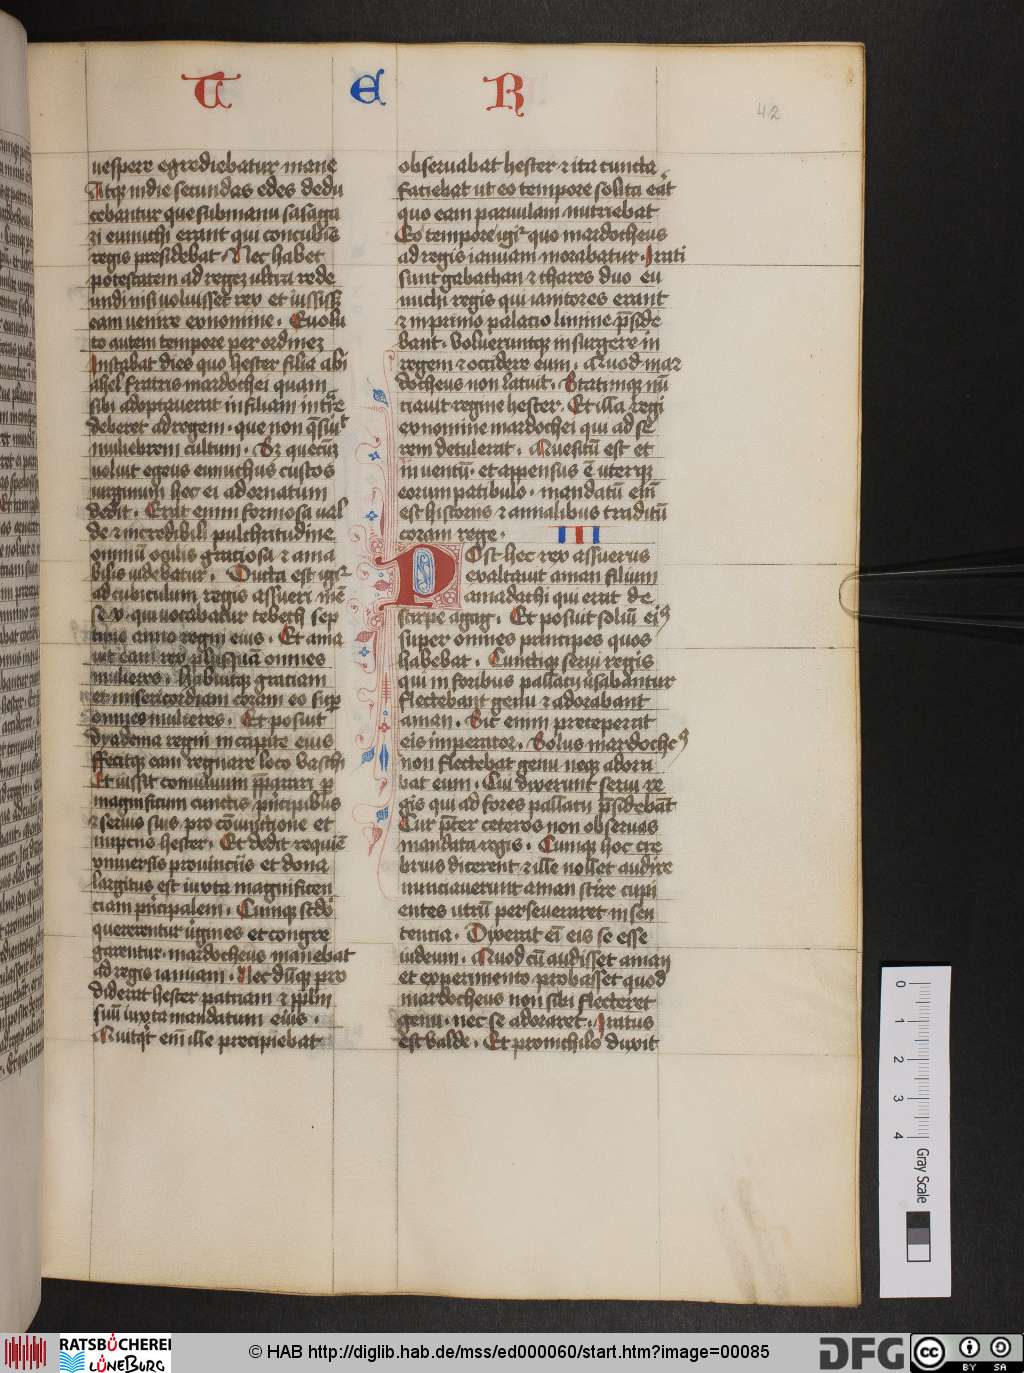 T E R
42
vespere egrediebatur mane
Atqȝ in die secundas edes dedu
cebantur que sub manu sasaga
zi eunuchi erant qui concubis
regis presidebat Nec habet
potestatem ad regeȝ ultra rede
undi nisi voluisset rex et iussissȝ
eam venire ex nomine . Evolu
to autem tempore per ordineȝ
Instabat dies quo hester filia abi
ahel fratris mardochei quam
sibi adoptaverat in filiam intrare
deberet ad regem . que non qsiuit
muliebrem cultum . Sȝ quecuȝ
voluit egeus eunuchus custos
virginum hec ei ad ornatum
dedit . Erat enim formosa val
de & incredibili pulchritudine
omniū oculis gratiosa & ama
bilis videbatur . Ducta est igr
ad cubiculum regis assueri mē
se x. qui vocabatur tebeth sep
timo anno regni eius . Et ama
vit eam rex plusquā omnes
mulieres . habuitqȝ gratiam
et misericordiam coram eo sup
omnes mulieres . Et posuit
dyadema regni in capite eius
ffecitqȝ eam regnare loco vasthi
Et iussit convivium pparari p
magnificum cunctis pncipibus
& servis suis . pro coniunctione et
nuptiis hester . Et dedit requiē
universis provinciis et dona
largitus est iuxta magnificen
ciam pncipalem . Cumqȝ scdo
quererentur vgines et congre
garentur . mardocheus manebat
ad regis ianuam . Nec duȝ pro
diderat hester patriam & pplm
suū iuxta mandatum eius .
Quitqt eni ille precipiebat
observabat hester & ita cuncta
faciebat ut eo tempore solita erat
quo eam parvulam nutriebat
Eo tempore igr quo mardocheus
ad regis ianuam morabatur . Irati
sunt gabathan & thares duo eu
nuchi regis qui ianitores erant
& in primo palacio limine pside
bant . volueruntqȝ insurgere in
regem & occidere eum . Quod mar
docheus non latuit . Statimqȝ nū
ciavit regine hester . Et illa regi
ex nomine mardochei qui ad se
rem detulerat . Quesitū est et
inventū . et appensus ē uterqȝ
eorum patibulo . mandatū enī
est historiis & annalibus traditū
coram rege .
III
Post hec rex assuerus
exaltavit aman filium
amadathi qui erat de
stirpe agag . Et posuit soliū eius
super omnes principes quos
habebat . Cunctiqȝ servi regis
qui in foribus pallacii versabantur
flectebant genu & adorabant
aman . Sic enim preceperat
eis imperator . Solus mardocheus
non flectebat genu neqȝ adora
bat eum . Cui dixerunt servi re
gis qui ad fores pallacii psidebāt
Cur pter ceteros non observas
mandata regis . Cumqȝ hoc cre
brius dicerent & ille nollet audire
nunciaverunt aman scire cupi
entes utrū perseveraret in sen
tencia . Dixerat ei eis se esse
iudeum . Quod cū audisset aman
et experimento probasset quod
mardocheus non sibi flecteret
genu . nec se adoraret . Iratus
est valde . Et pro nichilo duxit
0 1 2 3 4
Gray Scale
RATSBÜCHEREI
LÜNEBURG
© HAB http://diglib.hab.de/mss/ed000060/start.htm?image=00085
DFG
cc BY SA